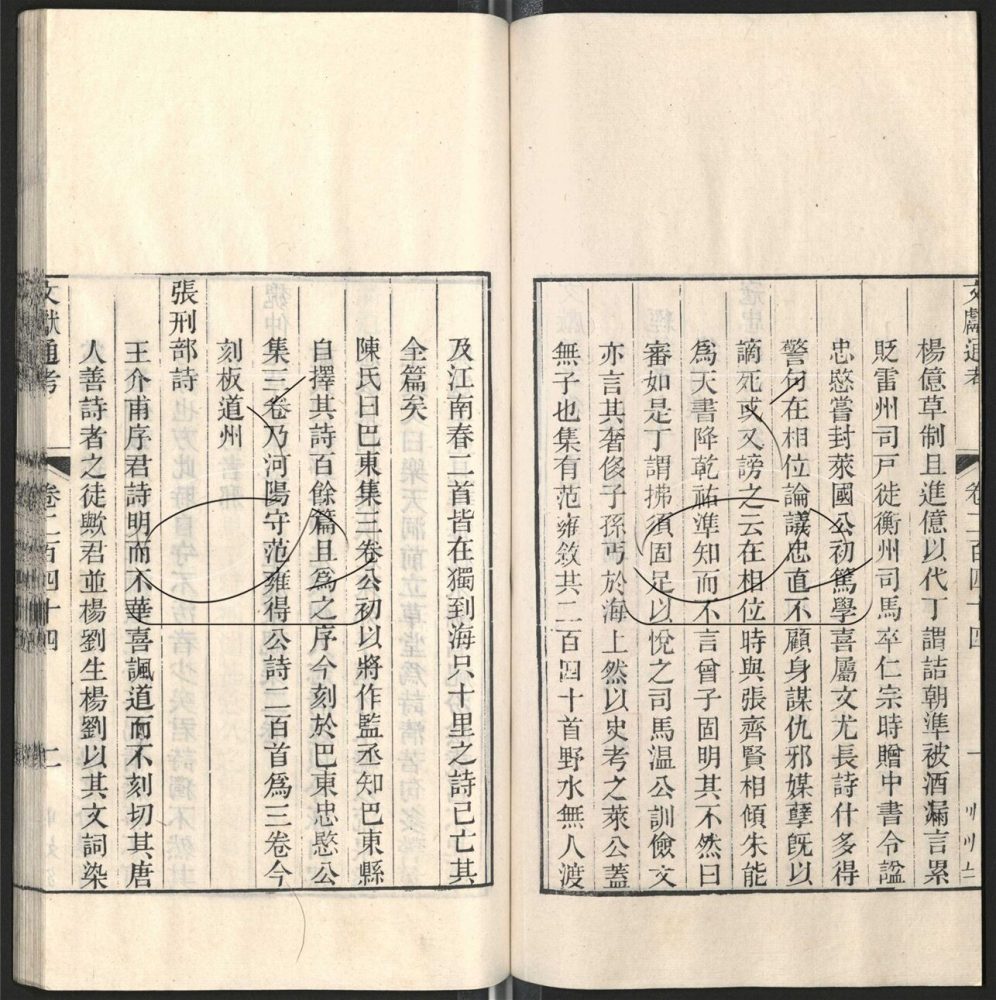 文獻通考 卷二百四十四 一
楊億草制且進億以代丁謂詰朝準被酒漏言累
貶雷州司戸徙衡州司馬卒仁宗時贈中書令諡
忠愍嘗封萊國公初篤學喜屬文尤長詩什多得
警句在相位論議忠直不顧身謀仇邪媒孽旣以
謫死或又謗之云在相位時與張齊賢相傾朱能
爲天書降乾祐準知而不言曾子固明其不然曰
審如是丁謂拂須固足以悅之司馬溫公訓儉文
亦言其奢侈子孫丐於海上然以史考之萊公蓋
無子也集有范雍敘共二百四十首野水無人渡
及江南春二首皆在獨到海只十里之詩已亡其
全篇矣
陳氏曰巴東集三卷公初以將作監丞知巴東縣
自擇其詩百餘篇且爲之序今刻於巴東忠愍公
集三卷乃河陽守范雍得公詩二百首爲三卷今
刻板道州
張刑部詩
王介甫序君詩明而不華喜諷道而不刻切其唐
人善詩者之徒歟君並楊劉生楊劉以其文詞染
文獻通考 卷二百四十四 二